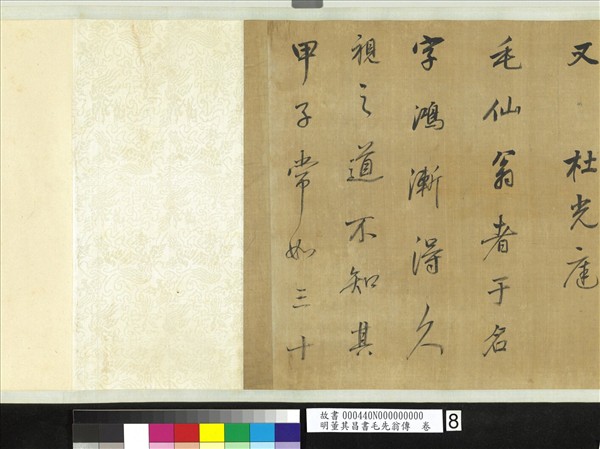 又 杜光庭
毛仙翁者于名
字鴻漸得久
視之道不知其
甲子常如三十
故書 000440N000000000
明董其昌書毛先翁傳 卷
8